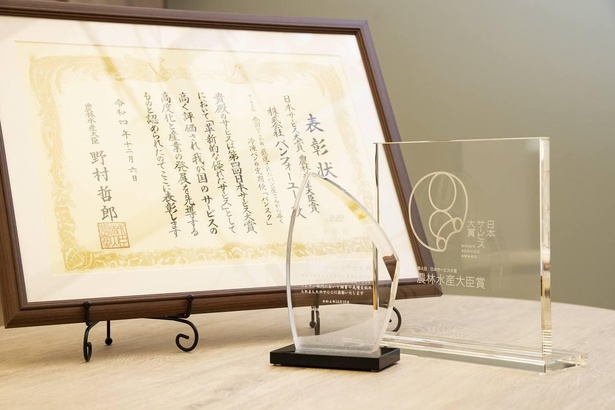 表彰状
日本サービス大賞 農林水産大臣賞
株式会社パンフォーユー 殿
冷凍パンの定期便「パンスク」
貴殿のサービスは第四回日本サービス大賞
において「革新的な優れたサービス」として
高く評価され我が国のサービスの
高度化と産業の発展を先導する
ものと認められたのでここに表彰します
令和四年十二月六日
農林水産大臣 野村哲郎
日本
サービス
大賞
第4回 日本サービス大賞
農林水産大臣賞